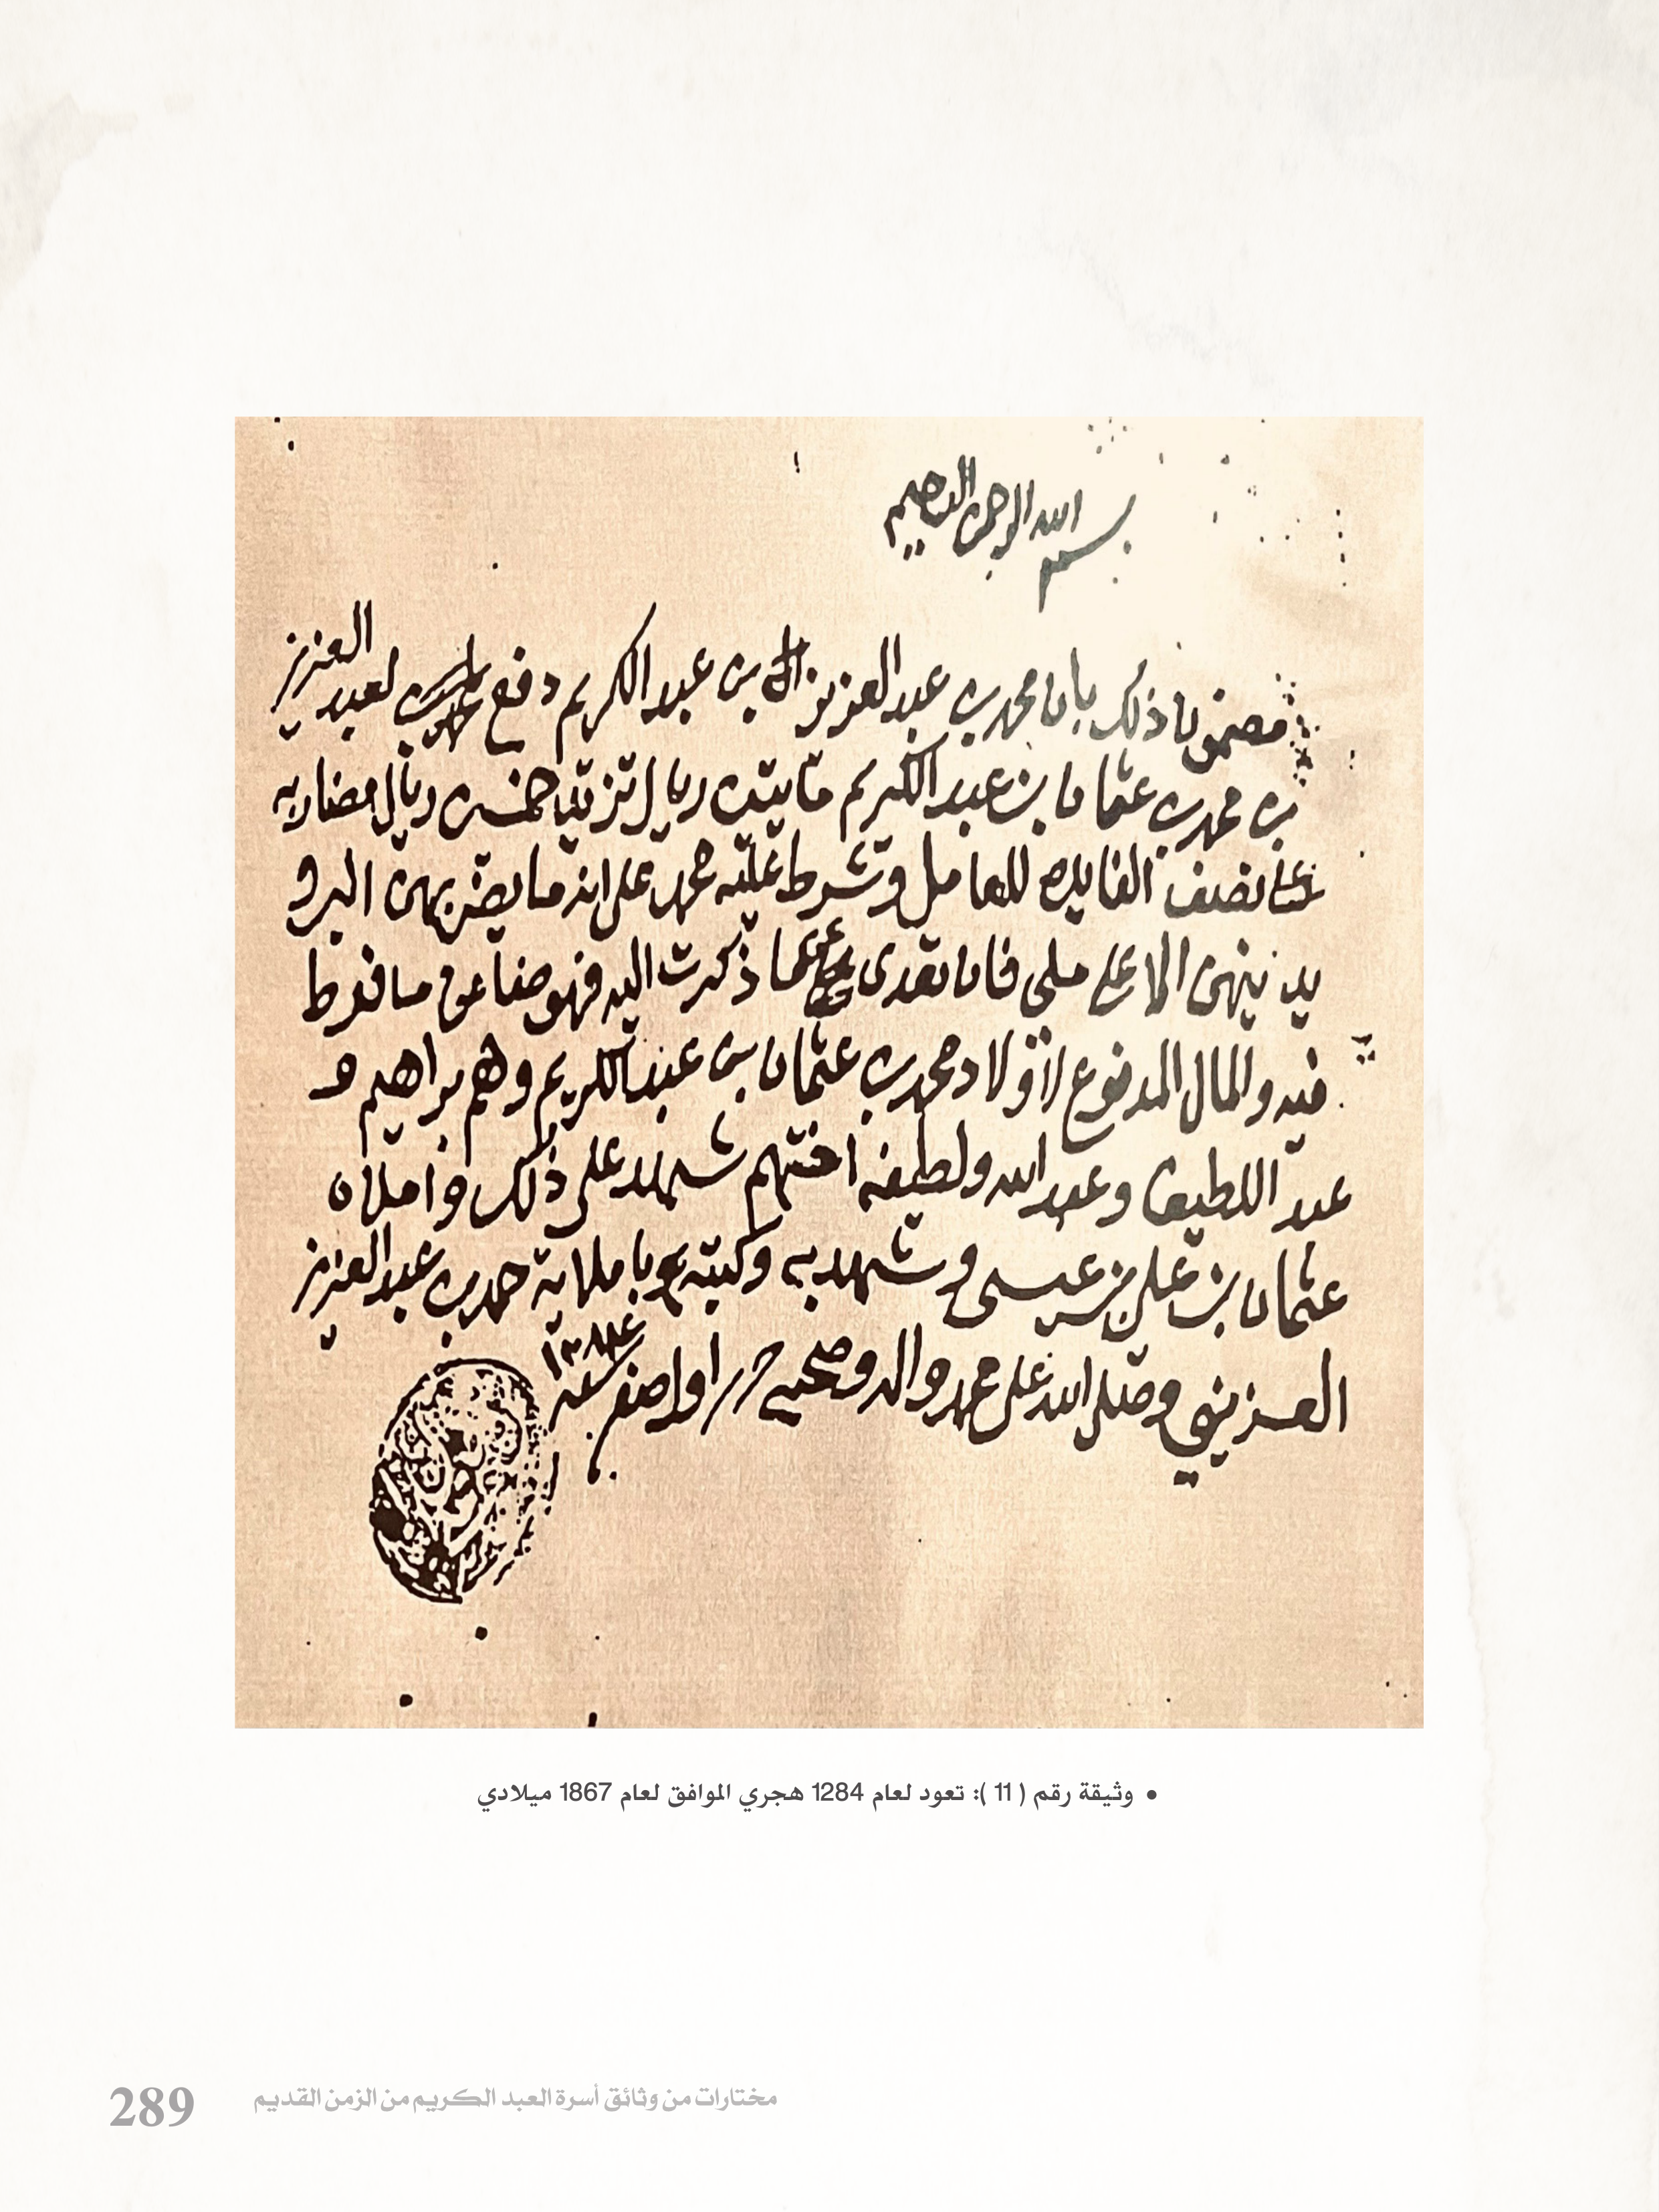 بسم الله الرحمن الرحيم
مضمون ذلك بان محمد بن عبد العزيز بن عبد الكريم دفع لعبد العزيز
بن محمد بن عثمان بن عبد الكريم مايتين ريال تزيد خمسين ريال مضاربه
نصف الفايده للعامل وشرط عليه محمد على انه ما يضرب بهن البر و
يدينهن الا على ملي فان تعدى عما ذكرت اليه فهو ضامن ما فرط
فيه والمال المدفوع لاولاد محمد بن عثمان بن عبد الكريم وهم براهيم و
عبد اللطيف وعبد الله ولطيفه اختهم شهد على ذلك واملاه
عثمان بن علي بن عيسى وشهد به وكتبه باملايه حمد بن عبد العزيز
العزيزي وصلى الله على محمد واله وصحبه حرر اول صفر سنه
• وثيقة رقم ( 11 ): تعود لعام 1284 هجري الموافق لعام 1867 ميلادي
289 مختارات من وثائق أسرة العبد الكريم من الزمن القديم